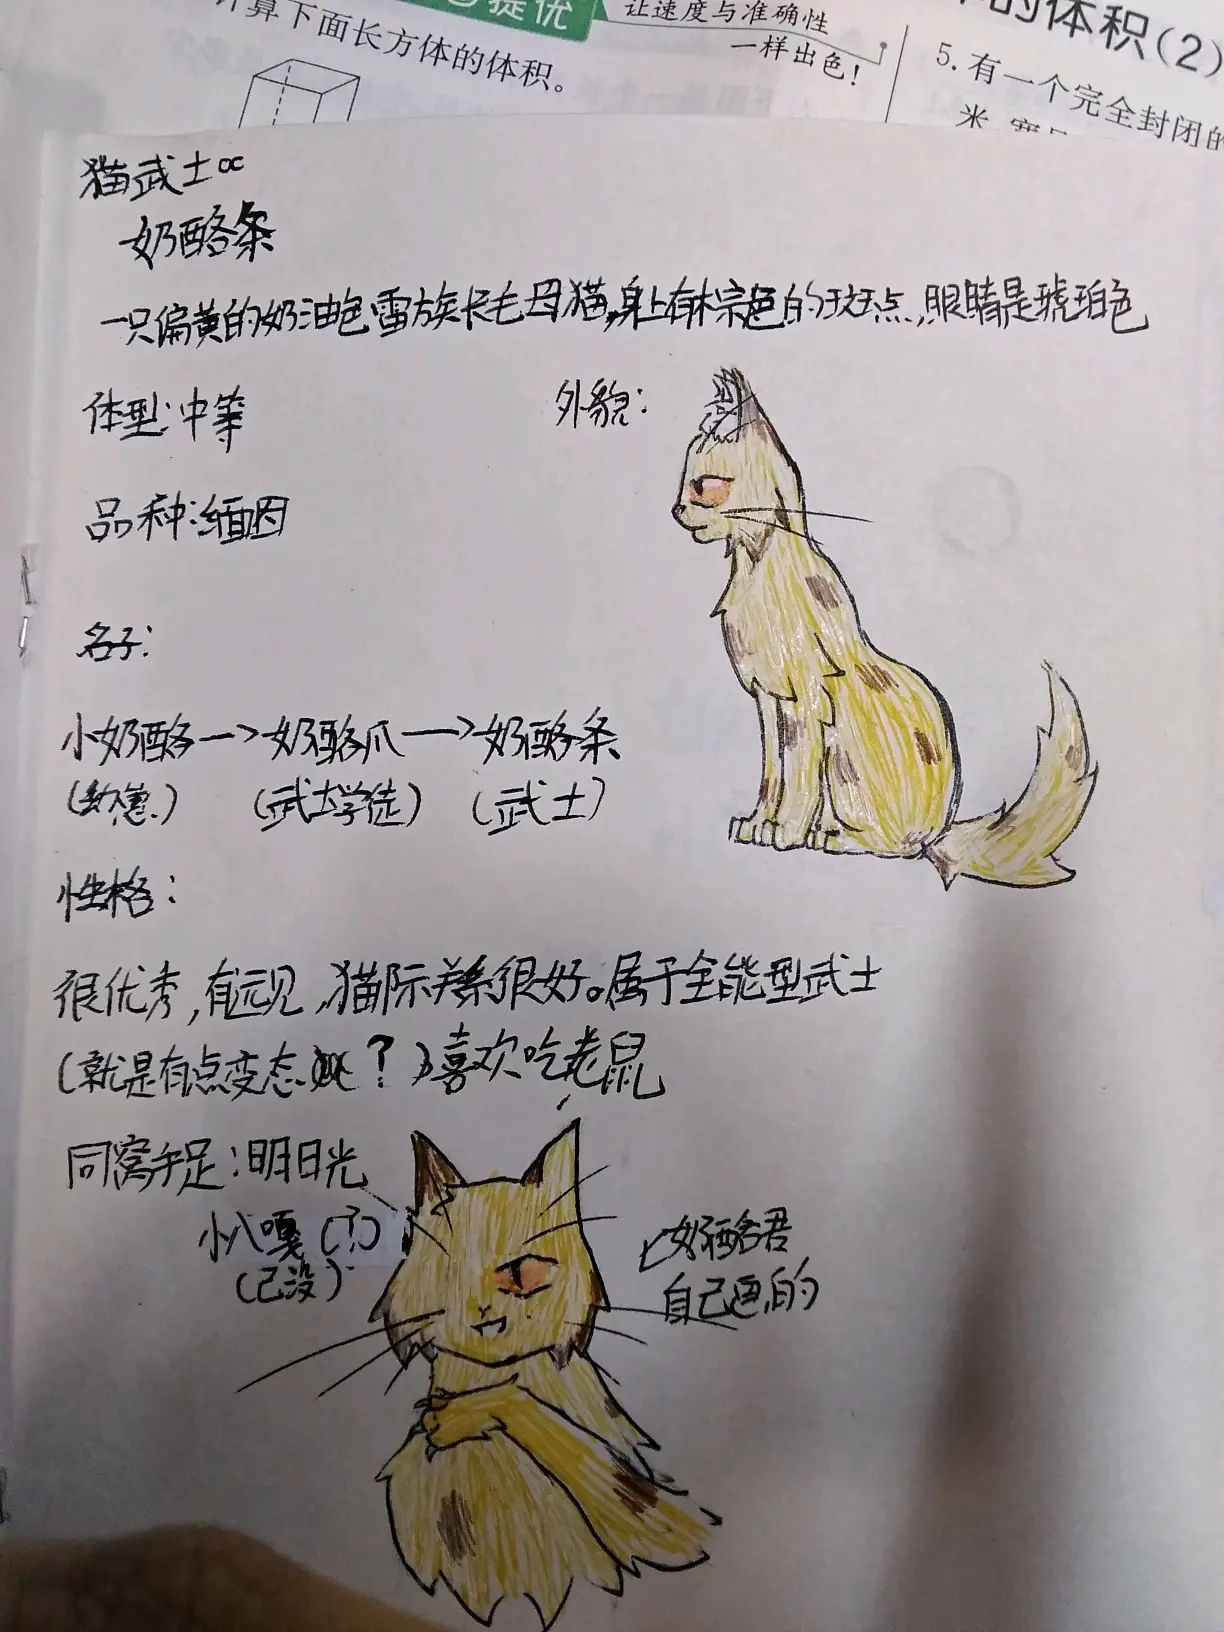 计算下面长方体的体积。
提优
让速度与准确性
一样出色!
的体积(2)
5.有一个完全封闭的
米
猫武士oc
奶酪条
一只偏黄的奶油色雷族长毛母猫,身上有棕色的斑点,眼睛是琥珀色
体型:中等
外貌:
品种:缅因
名子:
小奶酪—>奶酪爪—>奶酪条
(幼崽) (武士学徒) (武士)
性格:
很优秀,有远见,猫际关系很好。属于全能型武士
(就是有点变态 ?)喜欢吃老鼠
同窝手足:明日光
小八嘎(?)
(已没)
奶酪君
自己画的